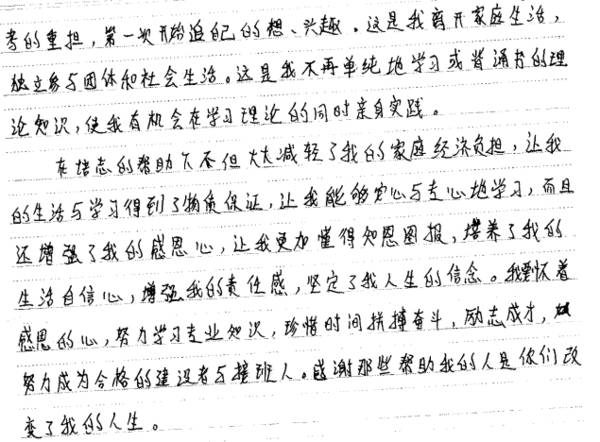 考的重担，第一次开始追自己的想、兴趣。这是我离开家庭生活，
独立参与团体和社会生活。这是我不再单纯地学习或背诵书的理
论知识，使我有机会在学习理论的同时亲身实践。
在培志的帮助下不但大大减轻了我的家庭经济负担，让我
的生活与学习得到了物质保证，让我能够安心与专心地学习，而且
还增强了我的感恩心，让我更加懂得知恩图报，培养了我的
生活自信心，增强我的责任感，坚定了我人生的信念。我要怀着
感恩的心，努力学习专业知识，珍惜时间拼搏奋斗，励志成才，
努力成为合格的建设者与接班人。感谢那些帮助我的人是你们改
变了我的人生。